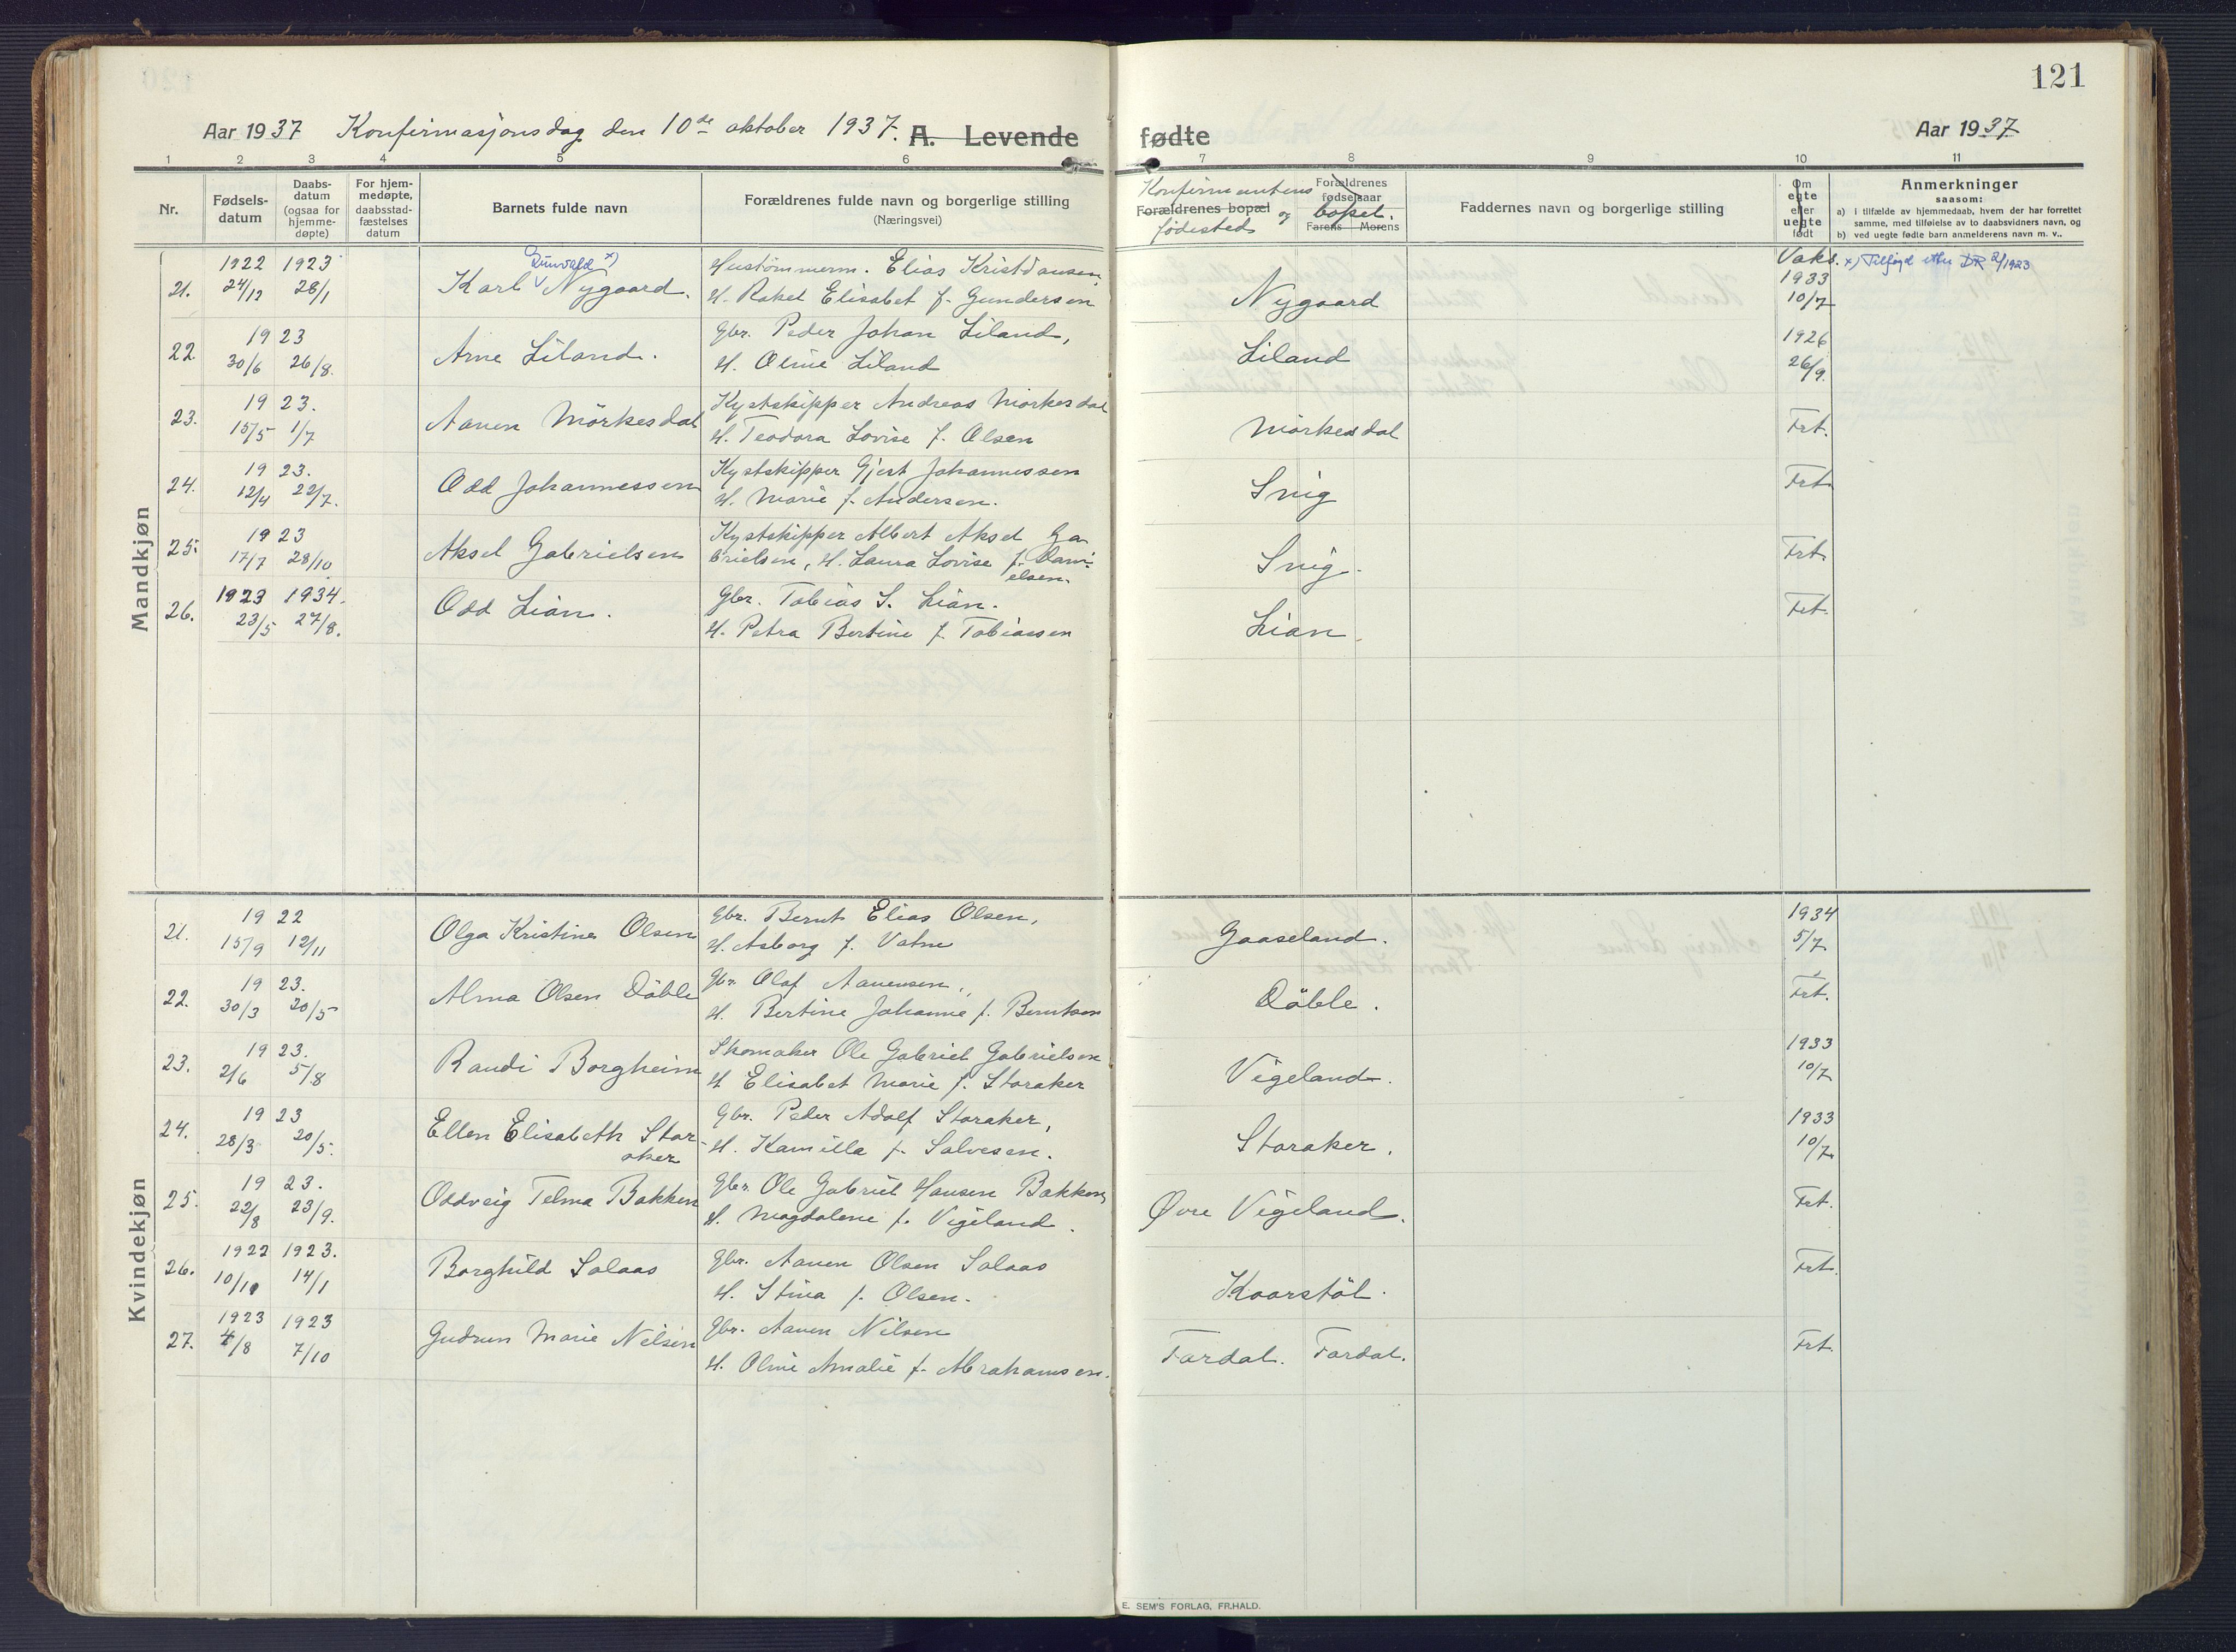 121
Aar 1937 Konfirmasjonsdag den 10de oktober 1937. A. Levende fødte Aar 1937
1 2 3 4 5 6 7 8 9 10 11
Nr.
Fødsels-
datum
Daabs-
datum
(ogsaa for
hjemme-
døpte)
For hjem-
medøpte,
daabsstad-
fæstelses
datum
Barnets fulde navn
Forældrenes fulde navn og borgerlige stilling
(Næringsvei)
Konfirmantens
Forældrenes bopæl og
fødested
Forældrenes
fødselsaar
bopel.
Farens Morens
Faddernes navn og borgerlige stilling
Om
egte
eller
uegte
født
Anmerkninger
saasom:
a) i tilfælde av hjemmedaab, hvem der har forrettet
samme, med tilføielse av to daabsvidners navn, og
b) ved uegte fødte barn anmelderens navn m. v..
Mandkjøn
1922 1923 Gunvald x) Hustømmerm. Elias Kristiansen, Vaks. x) Tilføyd etter DR 2/1923
21. 24/12 28/1 Karl Nygaard. H. Rakel Elisabet f. Gundersen Nygaard 1933
10/7
19 23 Gbr. Peder Johan Liland, 1926
22. 30/6 26/8. Arne Liland. H. Oline Liland Liland 26/9.
19 23. Kystskipper Andreas Mörkesdal
23. 15/5 1/7 Aanen Mörkesdal H. Teodora Lovise f. Olsen Mörkesdal Frt.
19 23. Kystskipper Gjert Johannessen
24. 12/4 22/7. Odd Johannessen H. Marie f. Andersen. Snig Frt.
19 23 Kystskipper Albert Aksel Ga-
25. 17/7 28/10 Aksel Gabrielsen brielsen, H. Laura Lovise f. Dani- Snig. Frt.
elsen.
1923 1934. Gbr. Tobias S. Lian.
26. 23/5 27/8. Odd Lian. H. Petra Bertine f. Tobiassen Lian. Frt.
Kvindekjøn
19 22 Gbr. Bernt Elias Olsen, 1934
21. 15/9 12/11 Olga Kristine Olsen H. Asborg f. Vatne Gaaseland. 5/7
19 23. Gbr. Olaf Aanensen,
22. 30/3 20/5 Alma Olsen Döble H. Bertine Johanne f. Berntsen Döble. Frt.
19 23. Skomaker Ole Gabriel Gabrielsen 1933
23. 2/6 5/8 Randi Borgheim H. Elisabet Marie f. Storaker Vigeland. 10/7
19 23 Gbr. Peder Adolf Storaker, 1933
24. 28/3 20/5. Ellen Elisabeth Stor- H. Kamilla f. Salvesen. Storaker. 10/7
aker
19 23. Gbr. Ole Gabriel Hansen Bakken,
25. 22/8 23/9. Oddveig Telma Bakken H. Magdalene f. Vigeland. Øvre Vigeland. Frt.
1922 1923. Gbr. Aanen Olsen Solaas
26. 10/10 14/1 Borghild Solaas H. Stina f. Olsen. Kaarstöl. Frt.
1923 1923 Gbr. Aanen Nilsen
27. 4/8 7/10 Gudrun Marie Nilsen H. Oline Amalie f. Abrahamsen. Fardal. Fardal. Frt.
E. SEM'S FORLAG, FR.HALD.